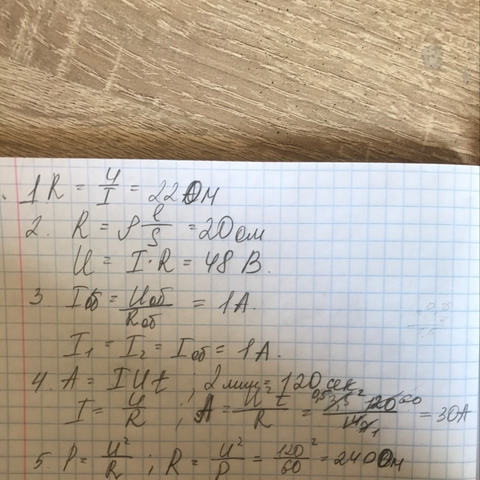 1 R = U/I = 22 Ом
2. R = ρ l/S = 20 ом
U = I·R = 48 В.
3 Iоб = Uоб/Rоб = 1А.
I₁ = I₂ = Iоб = 1А.
4. A = IUt, 2 мин = 120 сек
I = U/R ; A = U²t/R = = 30А
5. P = U²/R ; R = U²/P = 120²/60 = 240 Ом